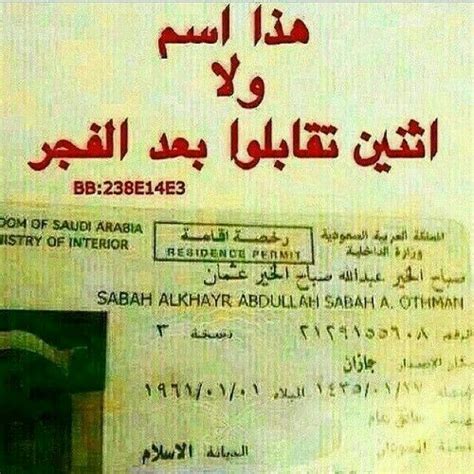 هذا اسم
ولا
اثنين تقابلوا بعد الفجر
BB:238E14E3
DOM OF SAUDI ARABIA
NISTRY OF INTERIOR
رخصة اقامة
RESIDENCE PERMIT
المملكة العربية السعودية
وزارة الداخلية
صباح الخير عبدالله صباح الخير عثمان
SABAH ALKHAYR ABDULLAH SABAH A. OTHMAN
الرقم ٢١٢٩١٥٥٦٠٨ نسخة ٣
الاصدار جازان
١٤٣٥/٠١/١٧ الميلاد ١٩٦١/٠١/٠١
سائق عام
السودان الديانة الاسلام